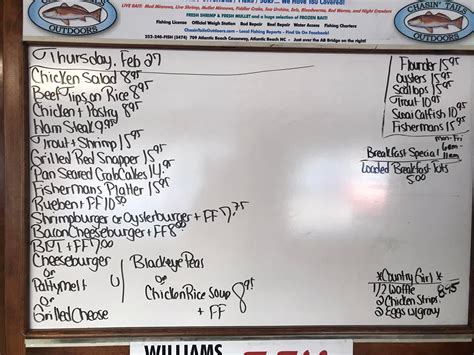 CHASIN' TAILS
OUTDOORS
BAIT: Bloodworms, Live Shrimp, Bullet Minnows, Fiddler Crabs, Sea Urchins, Eels, Bloodworms, Red Worms, and Night Crawlers
FRESH SHRIMP & FRESH MULLET and a huge selection of FROZEN BAIT!
Fishing License Official Weigh Station Rod Repair Reel Repair Water Access Fishing Charters
ChasinTailsOutdoors.com Local Fishing Reports - Find Us On Facebook!
252-240-FISH (3474) 709 Atlantic Beach Causeway, Atlantic Beach NC - Just over the AB Bridge on the right!
CHASIN' TAILS
OUTDOORS
Thursday, Feb 27
Chicken Salad 8.95
Beef Tips on Rice 8.95
Chicken + Pastry 8.95
Ham Steak 9.99
Trout + Shrimp 15.95
Grilled Red Snapper 15.95
Pan Seared Crab Cakes 14.95
Fishermans Platter 15.95
Rueben + FF 10.00
Shrimpburger or Oysterburger + FF 7.75
Bacon Cheeseburger + FF 8.00
BLT + FF 7.00
Cheeseburger
or
Pattymelt
or
Grilled Cheese
w/
Blackeye Peas
or
Chicken Rice Soup
+ FF
8.95
Flounder 15.95
Oysters 15.95
Scallops 15.95
Trout 10.95
Swai Catfish 10.95
Fishermans 15.95
Mon-Fri
6am-
11am
Breakfast Special
Loaded Breakfast Tots
5.00
*Country Girl*
1/2 Waffle 8.45
2 Chicken Strips
2 Eggs w/gravy
WILLIAMS